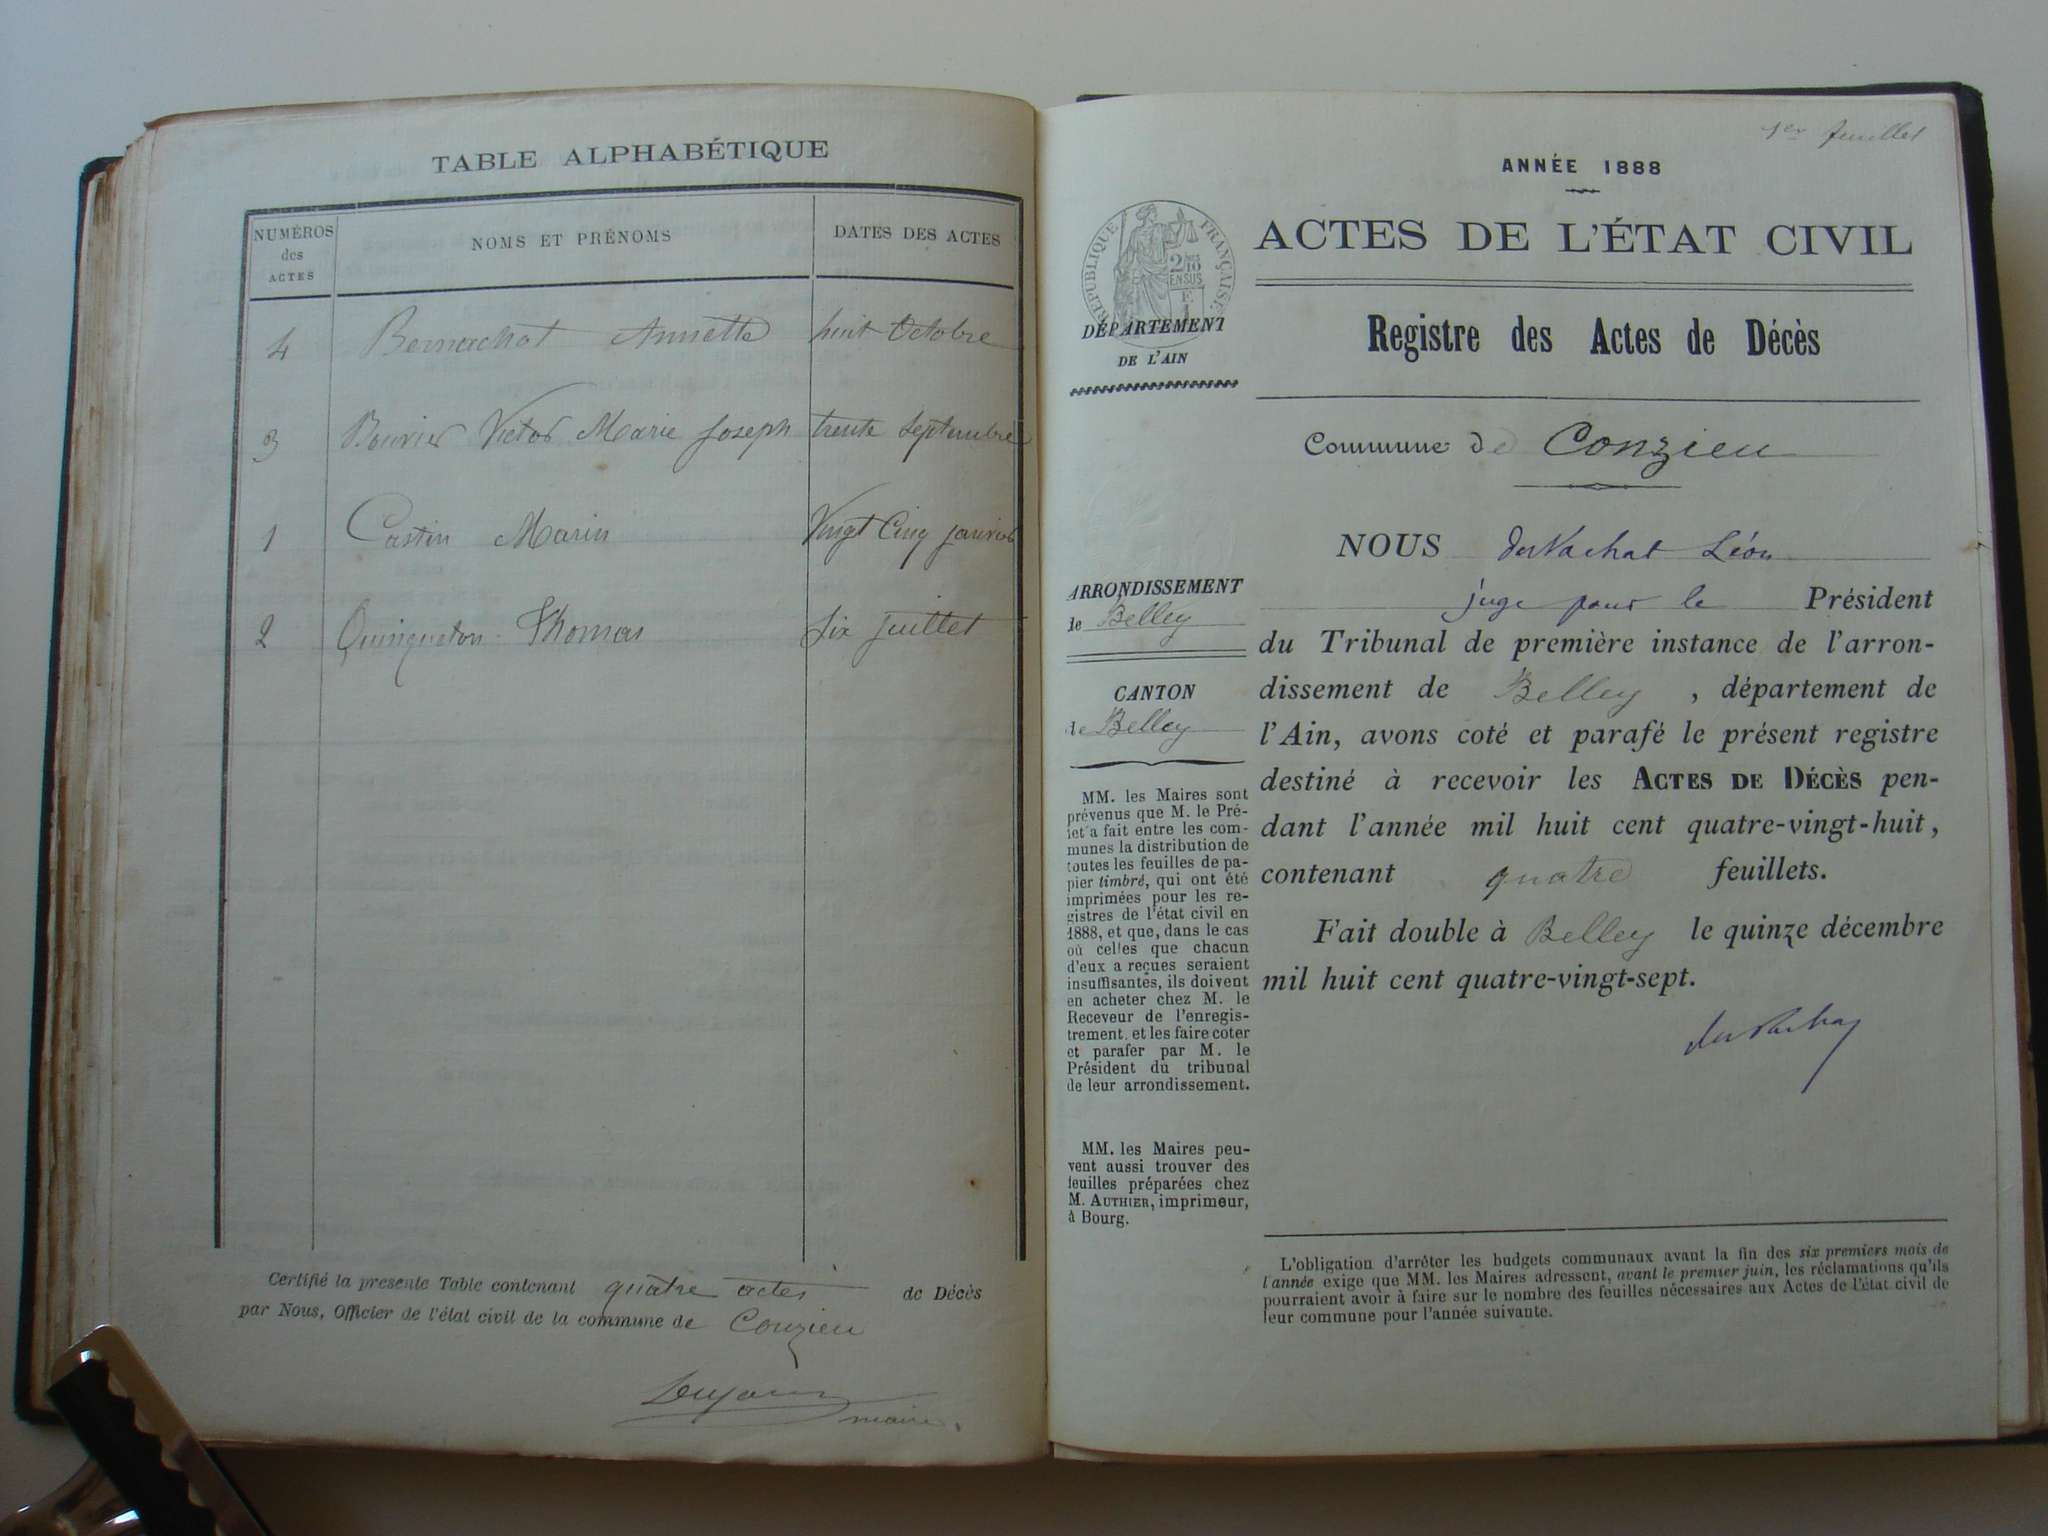 TABLE ALPHABÉTIQUE
NUMÉROS des ACTES
NOMS ET PRÉNOMS
DATES DES ACTES
4 Bernachot Annette huit Octobre
3 Bouvier Victor Marie Joseph trente Septembre
1 Castin Marin Vingt Cinq Janvier
2 Quinqueton Thomas Six Juillet
Certifié la présente Table contenant quatre actes de Décès
par Nous, Officier de l'état civil de la commune de Conzieu
maire.
1er feuillet
ANNÉE 1888
ACTES DE L'ÉTAT CIVIL
RÉPUBLIQUE FRANÇAISE
DÉPARTEMENT
DE L'AIN
Registre des Actes de Décès
Commune de Conzieu
NOUS duVachat Léon
juge pour le Président
du Tribunal de première instance de l'arron-
dissement de Belley, département de
l'Ain, avons coté et parafé le présent registre
destiné à recevoir les ACTES DE DÉCÈS pen-
dant l'année mil huit cent quatre-vingt-huit,
contenant quatre feuillets.
Fait double à Belley le quinze décembre
mil huit cent quatre-vingt-sept.
duVachat
ARRONDISSEMENT
de Belley
CANTON
de Belley
MM. les Maires sont
prévenus que M. le Pré-
fet a fait entre les com-
munes la distribution de
toutes les feuilles de pa-
pier timbré, qui ont été
imprimées pour les re-
gistres de l'état civil en
1888, et que, dans le cas
où celles que chacun
d'eux a reçues seraient
insuffisantes, ils doivent
en acheter chez M. le
Receveur de l'enregis-
trement, et les faire coter
et parafer par M. le
Président du tribunal
de leur arrondissement.
MM. les Maires peu-
vent aussi trouver des
feuilles préparées chez
M. AUTHIER, imprimeur,
à Bourg.
L'obligation d'arrêter les budgets communaux avant la fin des six premiers mois de
l'année exige que MM. les Maires adressent, avant le premier juin, les réclamations qu'ils
pourraient avoir à faire sur le nombre des feuilles nécessaires aux Actes de l'état civil de
leur commune pour l'année suivante.